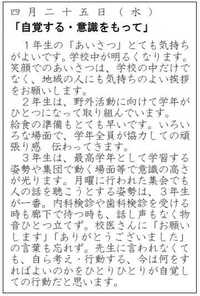 四月二十五日(水)
「自覚する・意識をもって」
　１年生の「あいさつ」とても気持ち
がよいです。学校中が明るくなります。
笑顔でのあいさつは、学校の中だけで
なく、地域の人にも気持ちのよい挨拶
をお願いします。
　２年生は、野外活動に向けて学年が
ひとつになって取り組んでいます。
給食の準備もとても早いです。いろい
ろな場面で、学年全員が協力しての頑
張り感　伝わってきます。
　３年生は、最高学年として学習する
姿勢や集団で動く場面等で意識の高さ
が光ります。月曜に行われた集会でも
人の話を聴こうとする姿勢は、３年生
が一番。内科検診や歯科検診を受ける
時も廊下で待つ時も、話し声もなく物
音ひとつ立てず。校医さんに「お願い
します」「ありがとうございました」
の言葉も忘れず。先生に言われなくて
も、自ら考え・行動する、今は何をす
ればよいのかをひとりひとりが自覚し
ての行動だと思います。